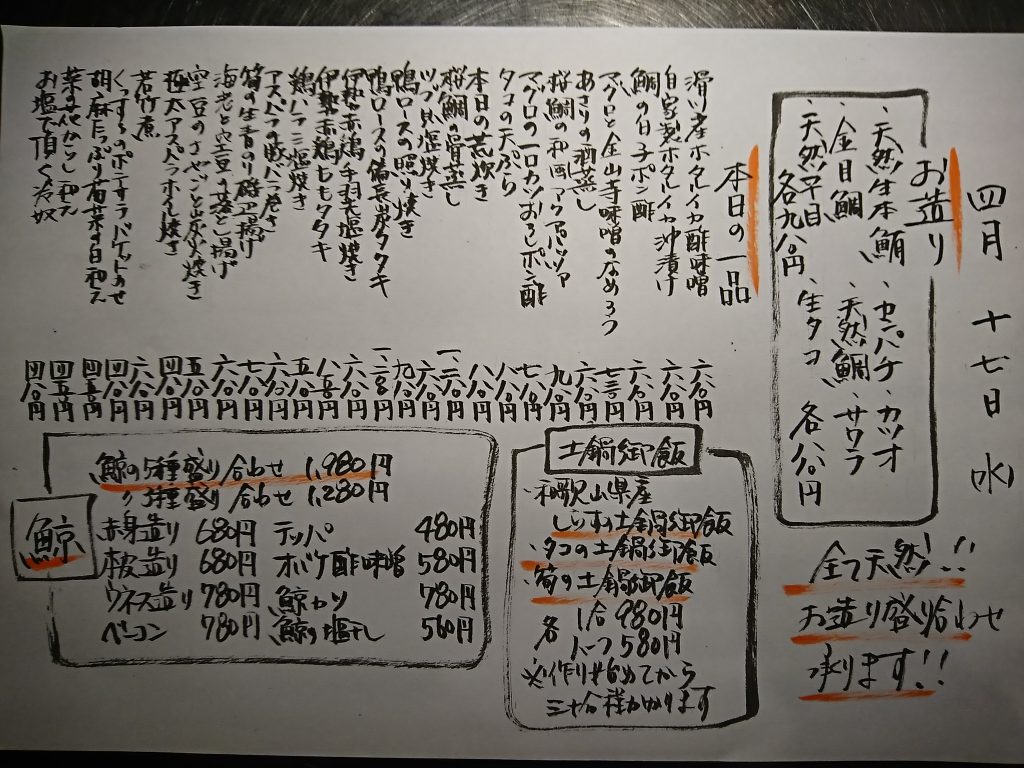 四月 十七日 水
お造り
・天然生本鮪 ・カンパチ・カツオ
・金目鯛 ・天然鯛・サワラ
・天然平目 ・生タコ
各九八〇円 各八八〇円
全て天然!!
お造り盛り合わせ
承ります!!
本日の一品
滑川産ホタルイカ酢味噌 六八〇円
自家製ホタルイカ沖漬け 六八〇円
鯛の白子ポン酢
マグロと金山寺味噌のなめろう
あさりの酒蒸し
桜鯛の和風アクアパッツァ
マグロの一口カツおろしポン酢
タコの天ぷら
本日の荒炊き
桜鯛の骨蒸し
ツブ貝塩焼き
鴨ロースの照り焼き
鴨ロースの備長炭タタキ
伊勢赤鶏手羽先塩焼き
伊勢赤鶏ももタタキ
鶏ハラミ塩焼き
アスパラの豚バラ巻き
筍の生青のり磯辺揚げ
海老と空豆の落とし揚げ
空豆のさやごと炭火焼き
極太アスパラホイル焼き
若竹煮
くんすものポテサラバケットのせ
胡麻たっぷり有菜の白和え
菜の花からし和え 四五〇円
お塩で頂く冷奴 四八〇円
土鍋御飯
・和歌山県産
しらすの土鍋御飯
・タコの土鍋御飯
・筍の土鍋御飯
各 1合 980円
ハーフ 580円
※作り始めてから
三十分程かかります
鯨
鯨の5種盛り合わせ 1,980円
〃3種盛り合わせ 1,280円
赤身造り 680円 テッパ 480円
本皮造り 680円 オバケ酢味噌 580円
ウネス造り 780円 鯨カツ 780円
ベーコン 780円 鯨の塩干し 560円